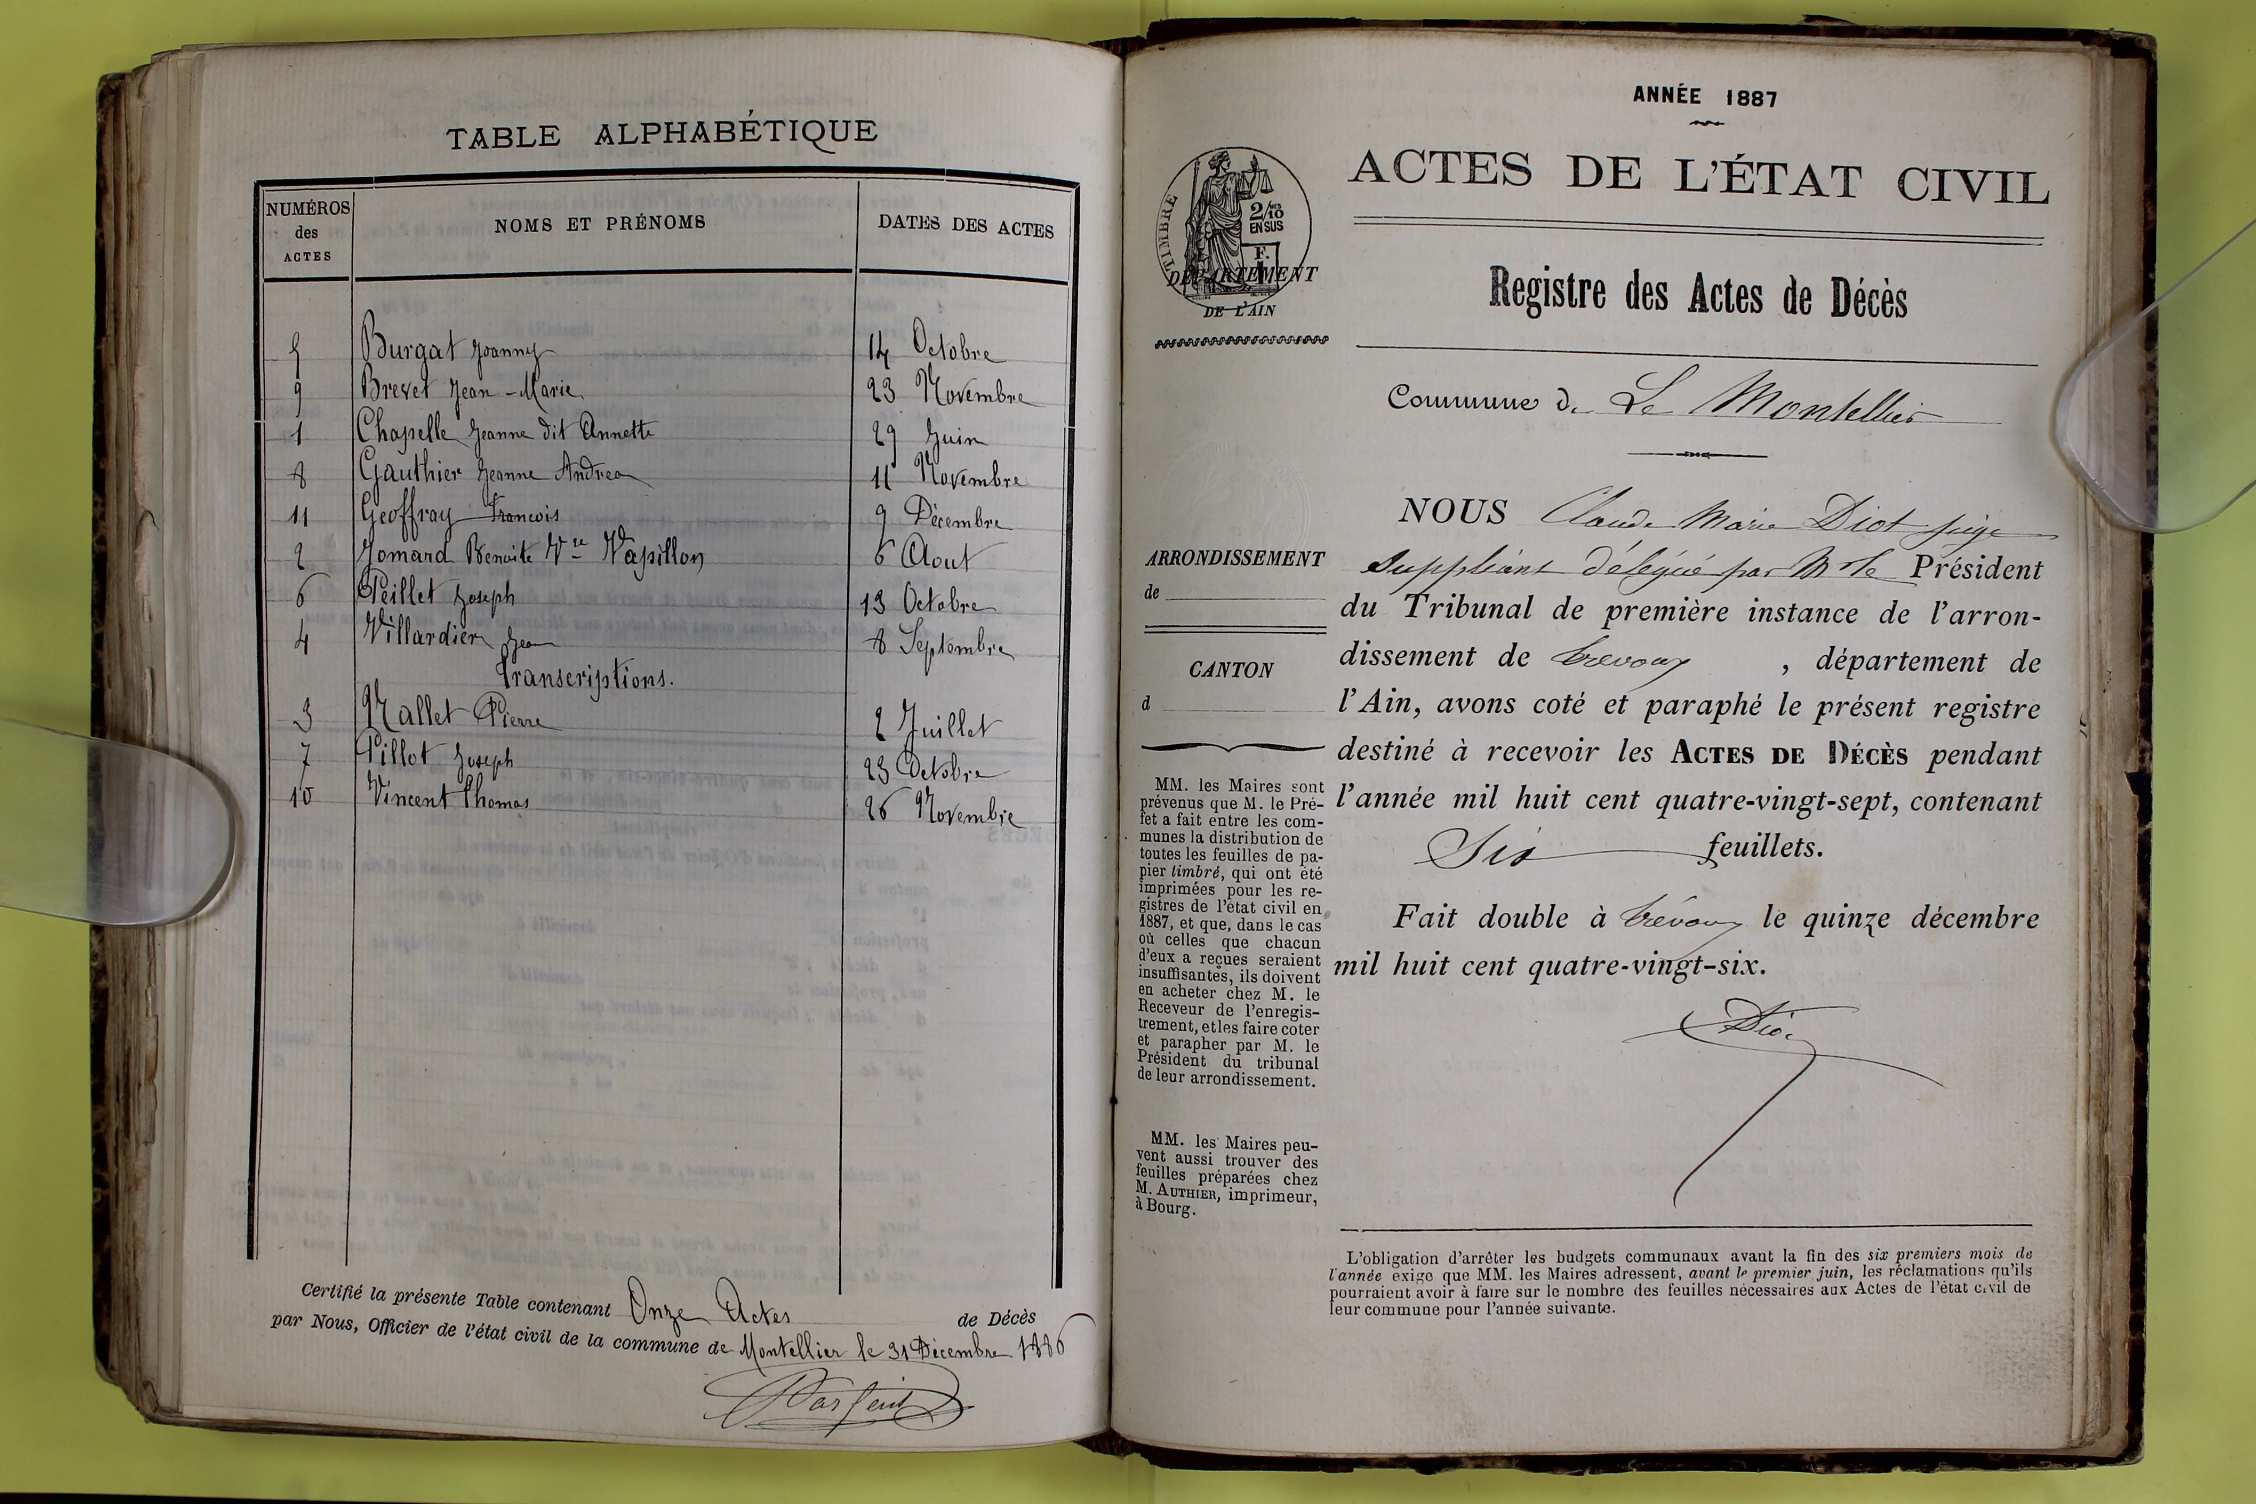 TABLE ALPHABÉTIQUE
NUMÉROS des ACTES NOMS ET PRÉNOMS DATES DES ACTES
5 Burgat Joanny 14 Octobre
9 Brevet Jean-Marie 23 Novembre
1 Chapelle Jeanne dit Annette 29 Juin
8 Gauthier Jeanne Andrea 11 Novembre
11 Geoffray Francois 9 Décembre
2 Jomard Benoite Vve Vapillon 6 Aout
6 Peillet Joseph 13 Octobre
4 Villardier Jean 8 Septembre
Transcriptions.
3 Mallet Pierre 2 Juillet
7 Pillot Joseph 23 Octobre
10 Vincent Thomas 26 Novembre
Certifié la présente Table contenant Onze Actes de Décès
par Nous, Officier de l'état civil de la commune de Montellier le 31 Décembre 1886
ANNÉE 1887
ACTES DE L'ÉTAT CIVIL
TIMBRE
2/10
EN SUS
F.
DÉPARTEMENT
DE L'AIN
Registre des Actes de Décès
Commune de Le Montellier
ARRONDISSEMENT
de
CANTON
d
MM. les Maires sont
prévenus que M. le Pré-
fet a fait entre les com-
munes la distribution de
toutes les feuilles de pa-
pier timbré, qui ont été
imprimées pour les re-
gistres de l'état civil en
1887, et que, dans le cas
où celles que chacun
d'eux a reçues seraient
insuffisantes, ils doivent
en acheter chez M. le
Receveur de l'enregis-
trement, et les faire coter
et parapher par M. le
Président du tribunal
de leur arrondissement.
MM. les Maires peu-
vent aussi trouver des
feuilles préparées chez
M. AUTHIER, imprimeur,
à Bourg.
NOUS Claude Marie Diot juge
suppléant délégué par Mr le Président
du Tribunal de première instance de l'arron-
dissement de Trevoux, département de
l'Ain, avons coté et paraphé le présent registre
destiné à recevoir les ACTES DE DÉCÈS pendant
l'année mil huit cent quatre-vingt-sept, contenant
Six feuillets.
Fait double à Trévoux le quinze décembre
mil huit cent quatre-vingt-six.
Diot
L'obligation d'arrêter les budgets communaux avant la fin des six premiers mois de
l'année exige que MM. les Maires adressent, avant le premier juin, les réclamations qu'ils
pourraient avoir à faire sur le nombre des feuilles nécessaires aux Actes de l'état civil de
leur commune pour l'année suivante.